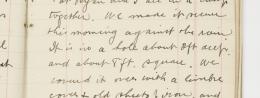 together. We made it secure
this morning against the rain.
It is a hole about 5ft deep.
and about 7ft. square. We
covered it over with a timber
cover & old sheets / iron, and